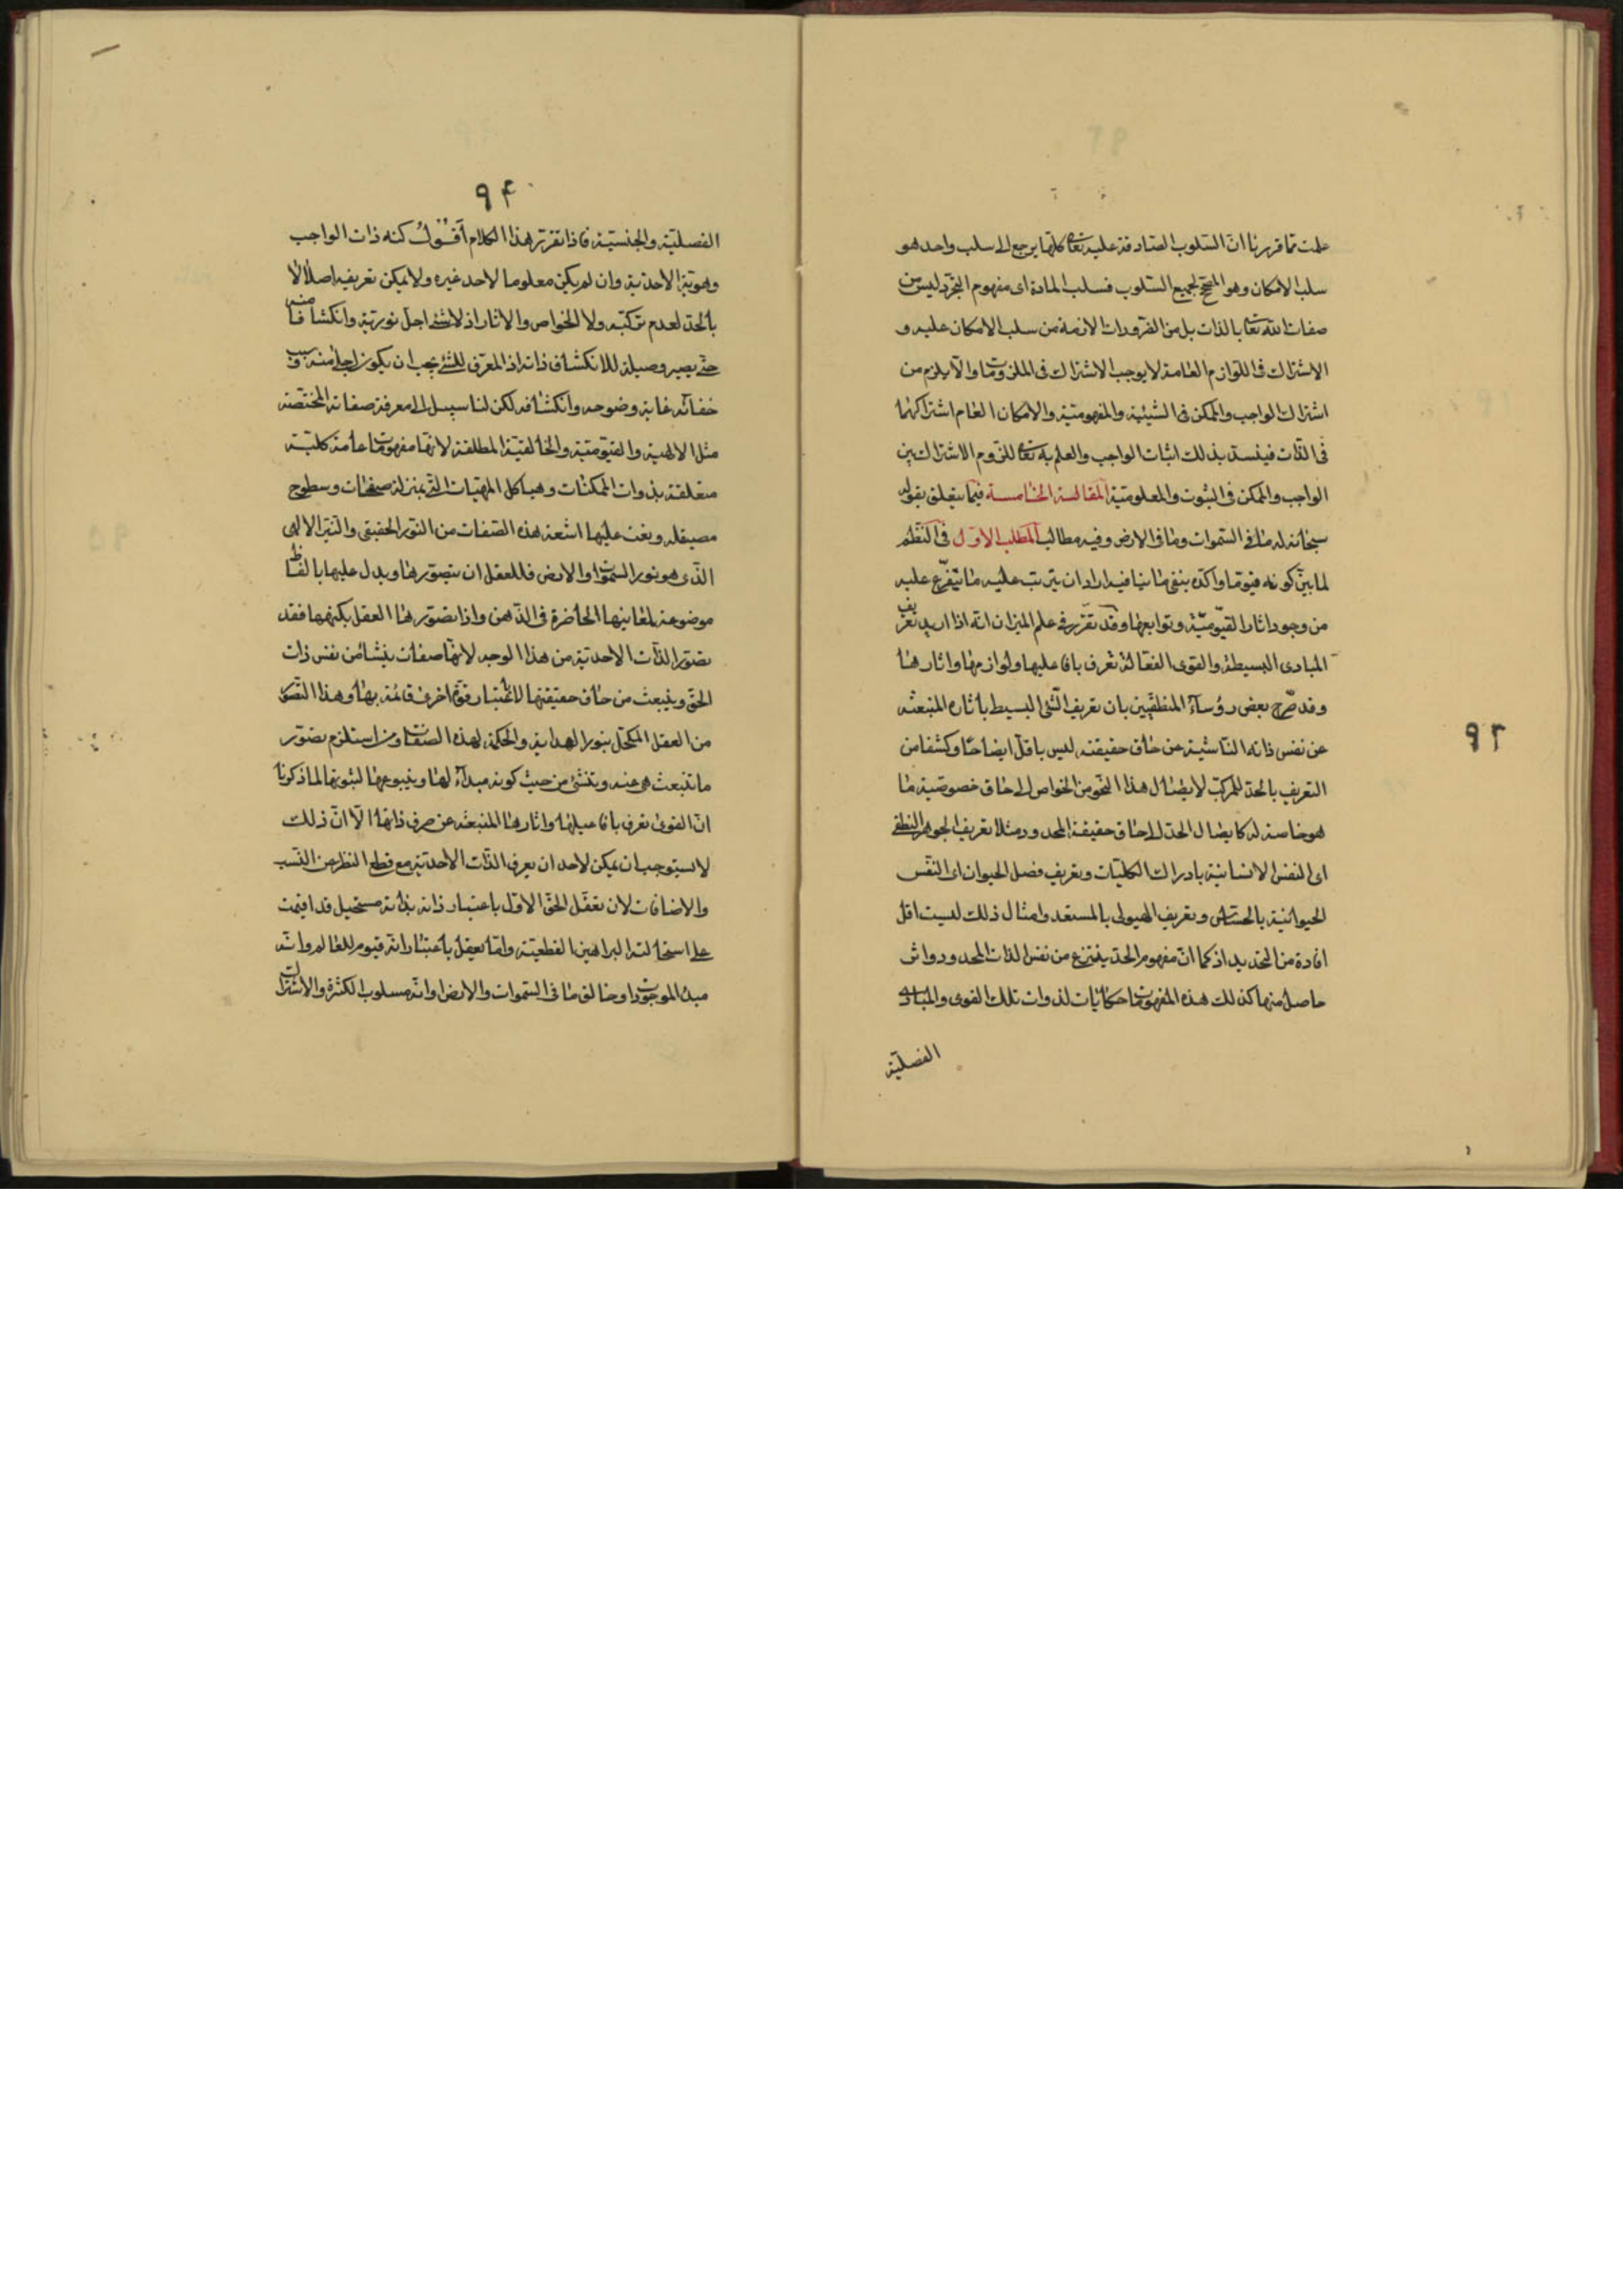 علمت مما قررنا ان السلوب الصادقة عليه تعالی كلها يرجع الى سلب واحد هو
سلب الامكان وهو المصحح لجميع السلوب فسلب المادة اى مفهوم التجرد ليس من
صفات الله تعالی بالذات بل من الضرورات اللازمة من سلب الامكان عليه و
الاشتراك فى اللوازم العامة لا يوجب الاشتراك فى الملزومات والا يلزم من
اشتراك الواجب والممكن فى الشيئية والمفهومية والامكان العام اشتراكهما
فى الذات فينسد بذلك اثبات الواجب والعلم به تعالی للزوم الاشتراك بين
الواجب والممكن فى الثبوت والمعلومية المقالة الخامسة فيما يتعلق بقوله
سبحانه له ما فى السموات وما فى الارض وفيه مطالب المطلب الاول فى النظم
لما بين كونه قيوما واكده بنفى ما ينافيه اراد ان يترتب عليه ما يتفرع عليه
من وجود اثار القيومية وتوابعها وقد تقرر فى علم الميزان انه اذا اريد تعريف
المبادى البسيطة والقوى الفعالة تعرف بافاعليها ولوازمها واثارها
وقد صرح بعض رؤساء المنطقيين بان تعريف الشئ البسيط باثاره المنبعثه
عن نفس ذاته الناشية عن حاق حقيقته ليس باقل ايضاحا وكشفا من
التعريف بالحد للمركب لايصال هذا النحو من الخواص الى حاق خصوصية ما
هو خاصة له كايصال الحد الى حاق حقيقة المحدود مثلا تعريف الجوهر النطقى
اى النفس الانسانية بادراك الكليات وتعريف فصل الحيوان اى النفس
الحيوانية بالحساس وتعريف الهيولى بالمستعد وامثال ذلك ليست اقل
افادة من التحديد اذ كما ان مفهوم الحد ينتزع من نفس الذات المحدود واثر
حاصل منها كذلك هذه المفهومات حكايات لذوات تلك القوى والمبادى
الفصلية
٩٣
٩۴
الفصلية والجنسية فاذا تقرر هذا الكلام أقول كنه ذات الواجب
وهويته الاحدية وان لم يكن معلوما لاحد غيره ولا يمكن تعريفه اصلا لا
بالحد لعدم تركبه ولا الخواص والاثار اذ لا شئ اجل نورية وانكشافا منه
حتى يصير وصيلة للانكشاف ذاته اذ المعرف للشئ يجب ان يكون اجلى منه وسبب
خفائه غاية وضوحه وانكشافه لكن لنا سبيل الى معرفة صفاته المختصة
مثل الالهية والقيومية والخالقية المطلقة لانها مفهومات عامة كلية
متعلقة بذوات الممكنات وهياكل المهيات التى بمنزلة صفحات وسطوح
مصيقلة وقعت عليها اشعة هذه الصفات من النور الحقيقى والنير الالهى
الذى هو نور السموات والارض فللعقل ان يتصورها ويدل عليها بالفاظ
موضوعة لمعانيها الحاضرة فى الذهن واذا تصورها العقل بكنهها فقد
تصور الذات الاحدية من هذا الوجه لانها صفات ينشا من نفس ذات
الحق وينبعث من حاق حقيقتها لا باعتبار قوة اخرى قائمة بها وهذا التصور
من العقل المكحل بنور الهداية والحكمة لهذه الصفات وان استلزم تصور
ما تنبعث هى عنه وتنشئ من حيث كونه مبداء لها وينبوعها لثبوتها لما ذكرنا
ان القوى تعرف بافاعيلها واثارها المنبعثه عن صرف ذاتها الا ان ذلك
لا يستوجب ان يمكن لاحد ان يعرف الذات الاحدية مع قطع النظر عن النسب
والاضافات لان تعقل الحق الاول باعتبار ذاته بذاته مستحيل قد اقيمت
على استحالته البراهين القطعية وانما تعقل باعتبار انه قيوم للعالم وانه
مبدء الموجودات وخالق ما فى السموات والارض او انه مسلوب الكثرة والاشتراك